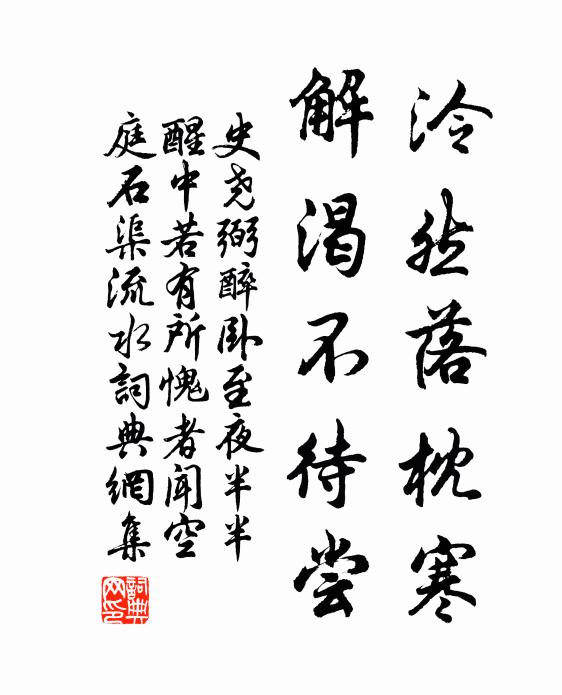 泠然落枕寒
解渴不待尝
史尧弼醉卧至夜半半
醒中若有所愧者闻空
庭石渠流水詞典網集
詞典网印